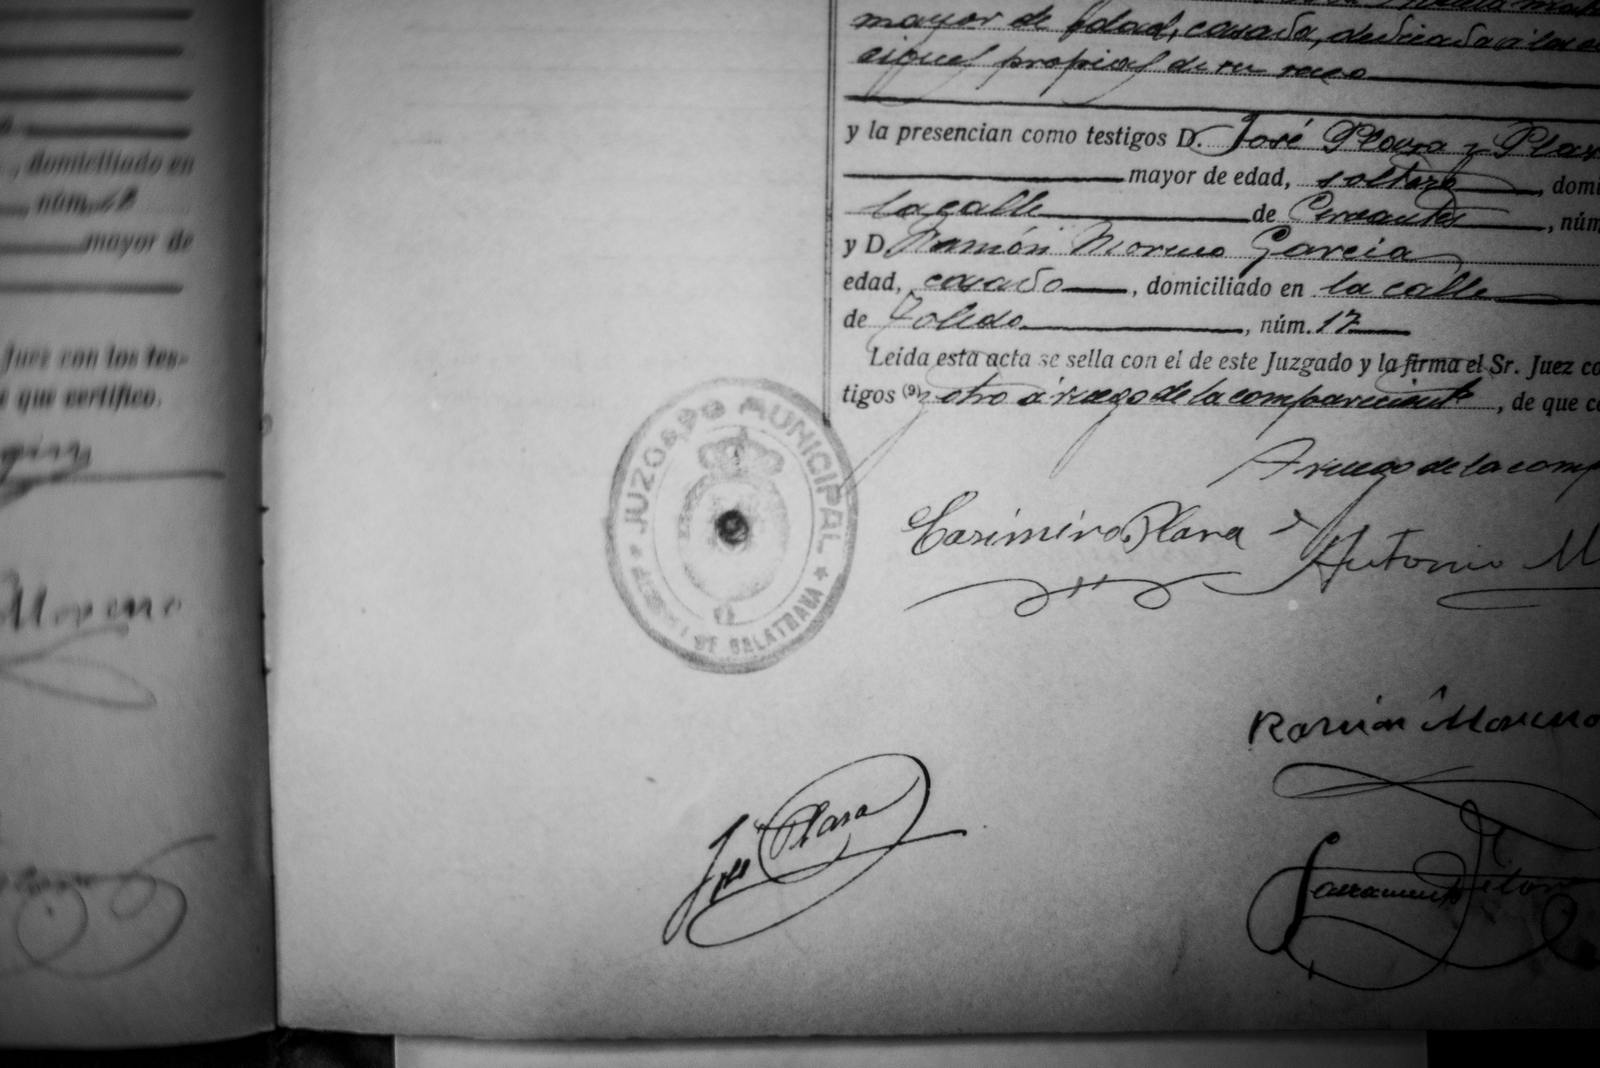 , domiciliado en
, núm. 18
mayor de
Juez con los tes-
e que certifico.
Moreno
mayor de edad, casada, dedicada á las
propias de su sexo
y la presencian como testigos D. José Plaza y Plaz
mayor de edad, soltero, domi
la calle de Cervantes, núm
y D. Ramón Moreno Garcia
edad, casado, domiciliado en la calle
de Toledo, núm. 17
Leída esta acta se sella con el de este Juzgado y la firma el Sr. Juez co
tigos (9) y otro á ruego de la compareciente, de que ce
JUZGADO MUNICIPAL
DE CALATRAVA
A ruego de la comp
Casimiro Plaza
Antonio M
Ramón Moreno
José Plaza
Sacramento